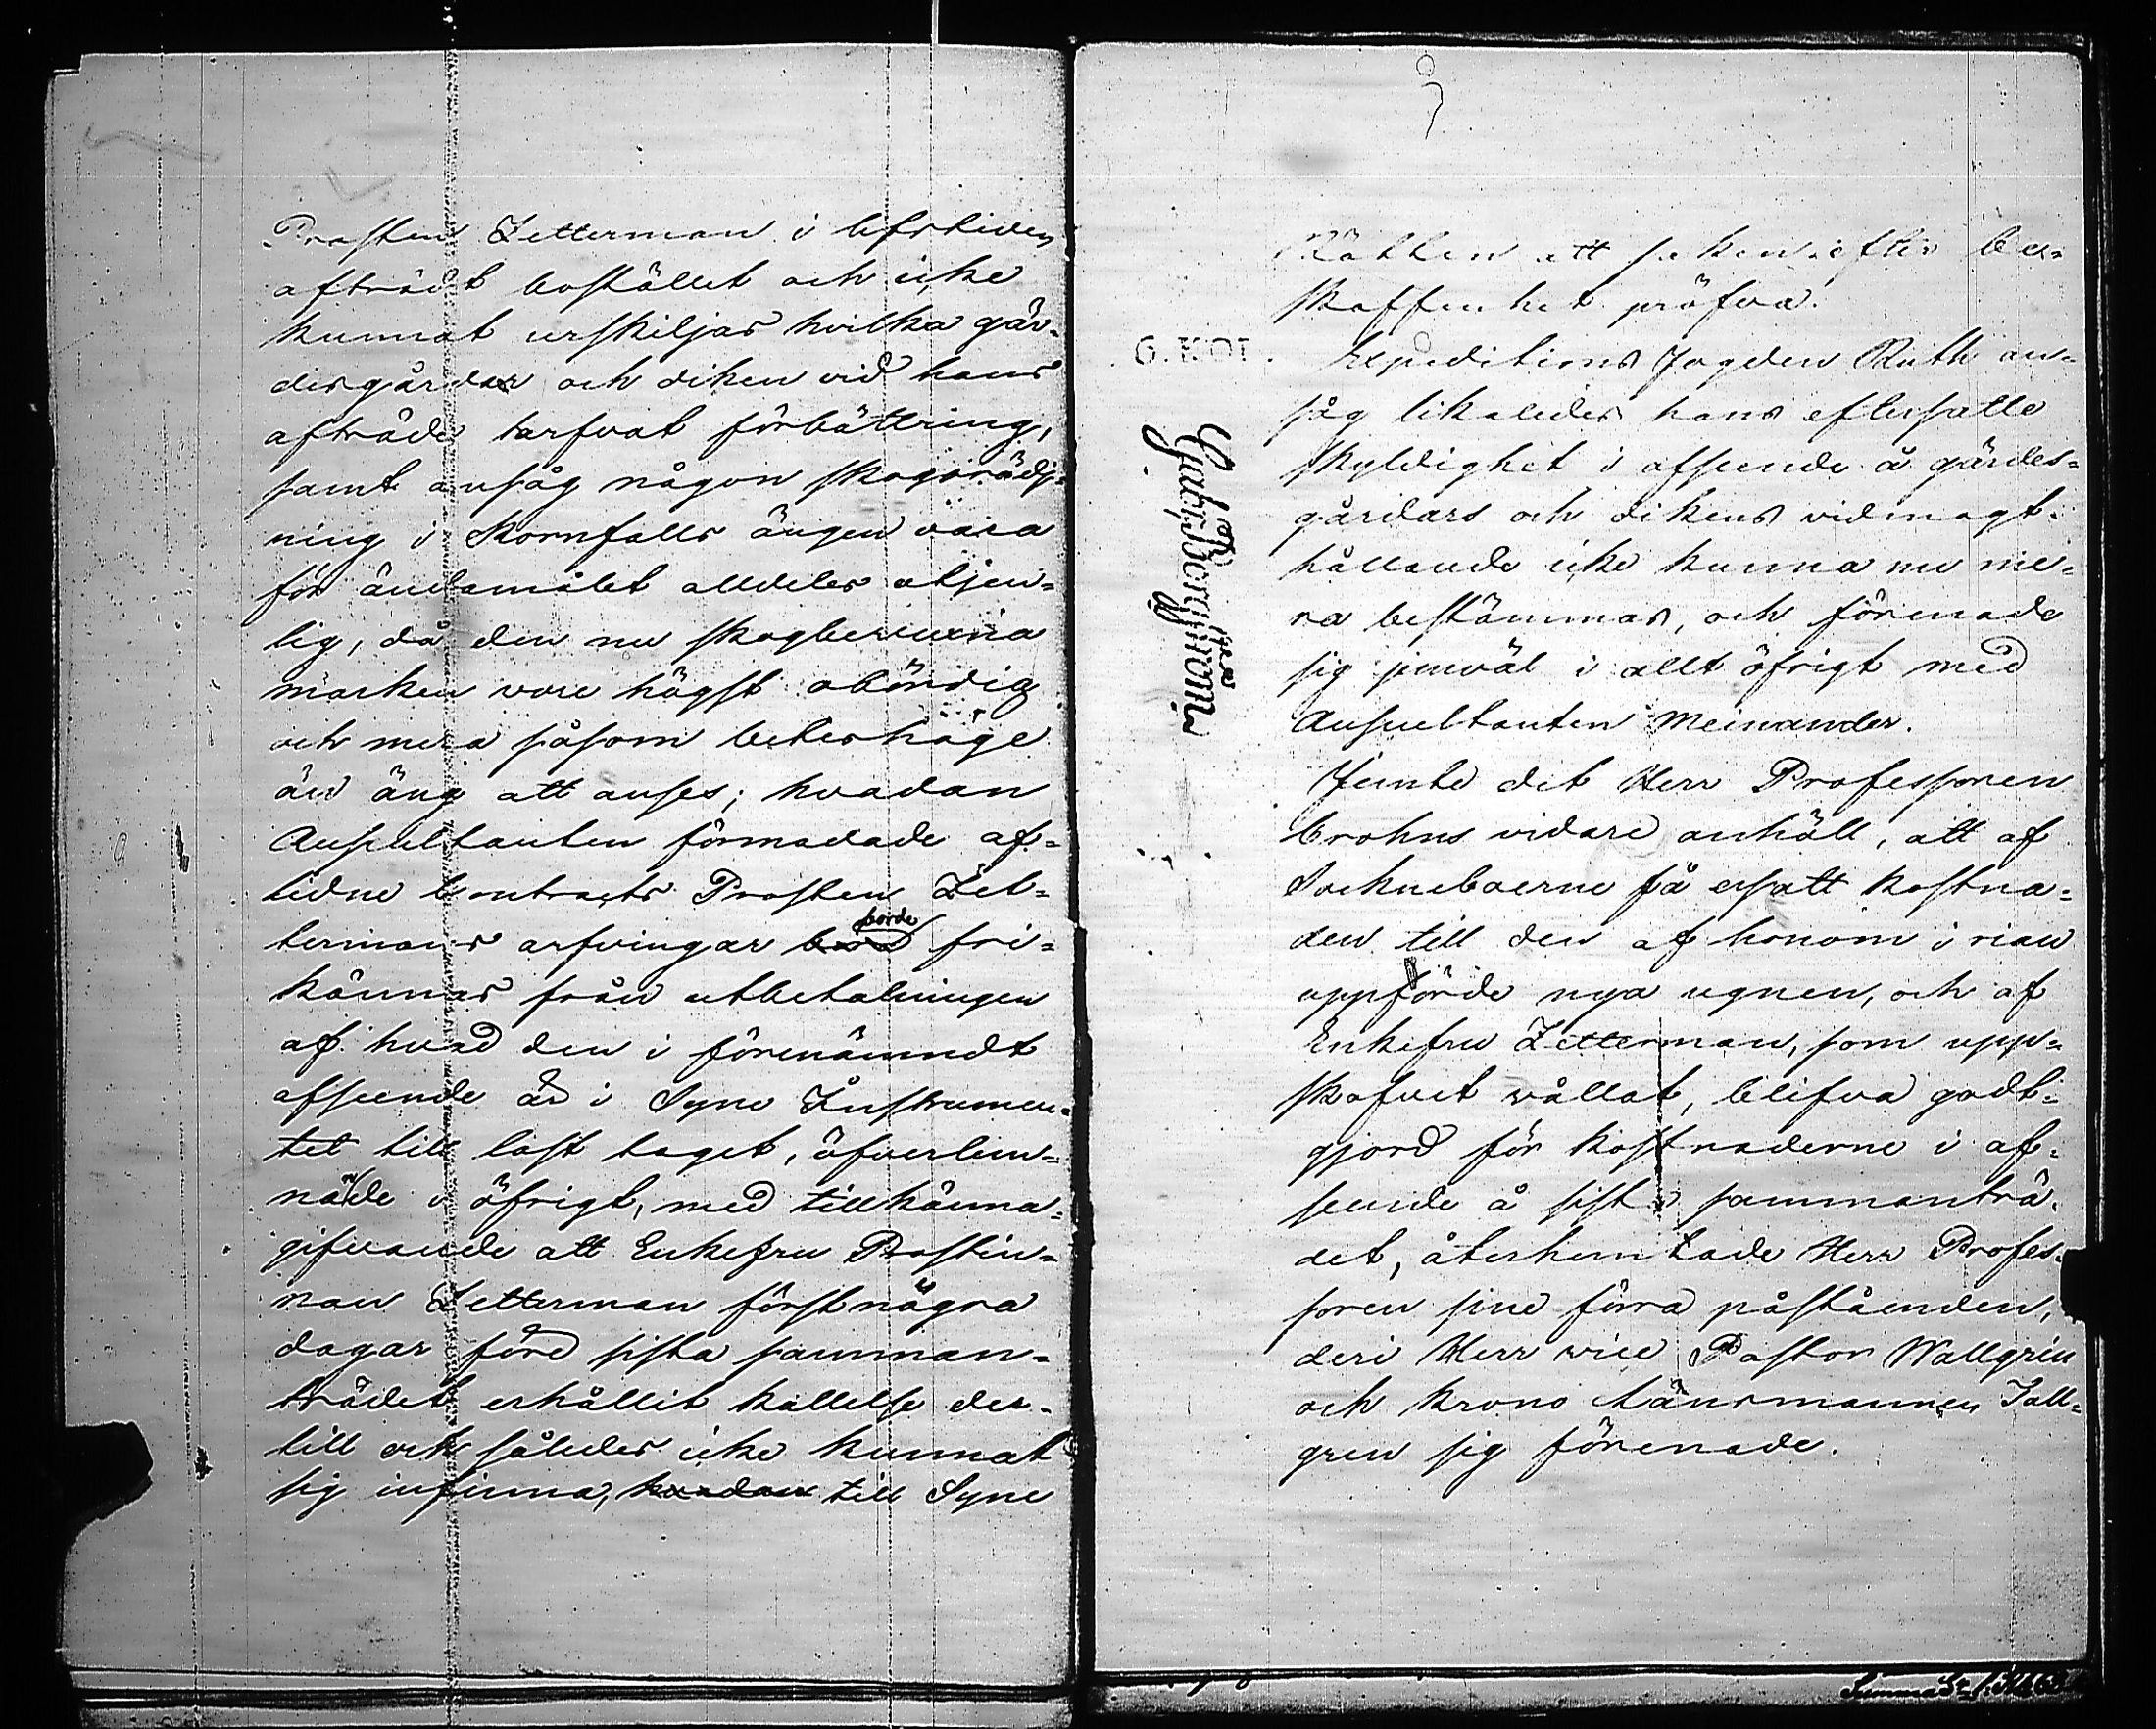 Prosten Zetterman i lifstiden
afträdt bostället och icke
kunnat urskiljas hvilka gär-
desgårdar och diken vid hans
afträde tarfvat förbättring,
samt ansåg någon skogsrödj-
ning i Kornfalls ängen vara
för ändamålet alldeles otjen-
lig, då den nu skogbevuxna
marken vore högst obördig
och mera såsom beteshage
än äng att anses; hvadan
Auscultanten förmodade af-
lidne Contracts Prosten Zet-
termans arfvingar borde fri-
kännas från utbetalningen
af hvad den i förenämndt
afseende är i Syne Instrumen-
tet till last taget, öfverlem-
nade i öfrigt, med tillkänna-
gifvande att Enkefru Prostin-
nan Zetterman först några
dagar före sista samman-
trädet erhållit kallelse der-
till och således icke kunnat
sig infinna, hvadan till Syne
Rätten att saken efter be-
skaffenhet pröfva.
Expeditions Fogden Ruth an-
såg likaledes hans eftersatte
skyldighet i afseende å gärdes-
gårdars och dikens vidmagt-
hållande icke kunna nu me-
ra bestämmas, och förenade
sig jemväl i allt öfrigt med
Auscultanten Meinander.
Jemte det Herr Professoren
Crohns vidare anhöll, att af
Sockneboerne få ersatt kostna-
den till den af honom i rian
uppförde nya ugnen, och af
Enkefru Zetterman, som upp-
skofvet vållat, blifva godt-
gjord för kostnaderne i af-
seende å sista sammanträ-
det, återhemtade Herr Profes-
soren sine förra påståenden,
deri Herr vice Pastor Wallgrén
och Krono Länsmannen Tall-
gren sig förenade.